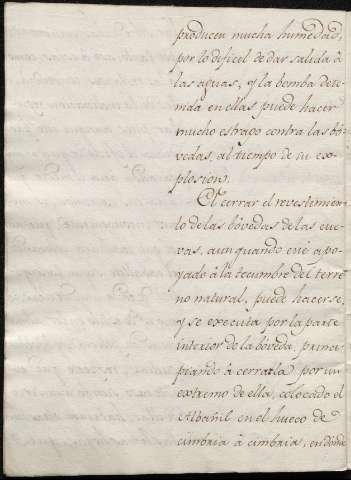 producen mucha humedad,
por lo dificil de dar salida à
las aguas, y la bomba dete-
nida en ellas puede hacer
mucho estrago contra las bó-
vedas, al tiempo de su ex-
plosion.
El cerrar el revestimien-
to de las bóvedas de las cue-
vas, aun quando esté apo-
yado à la techumbre del terre-
no natural, puede hacerse,
y se executa por la parte
interior de la bóveda, princi-
piando à cerrarla por un
extremo de ella, colocado el
Albañil en el hueco de
cimbria à cimbria, en donde